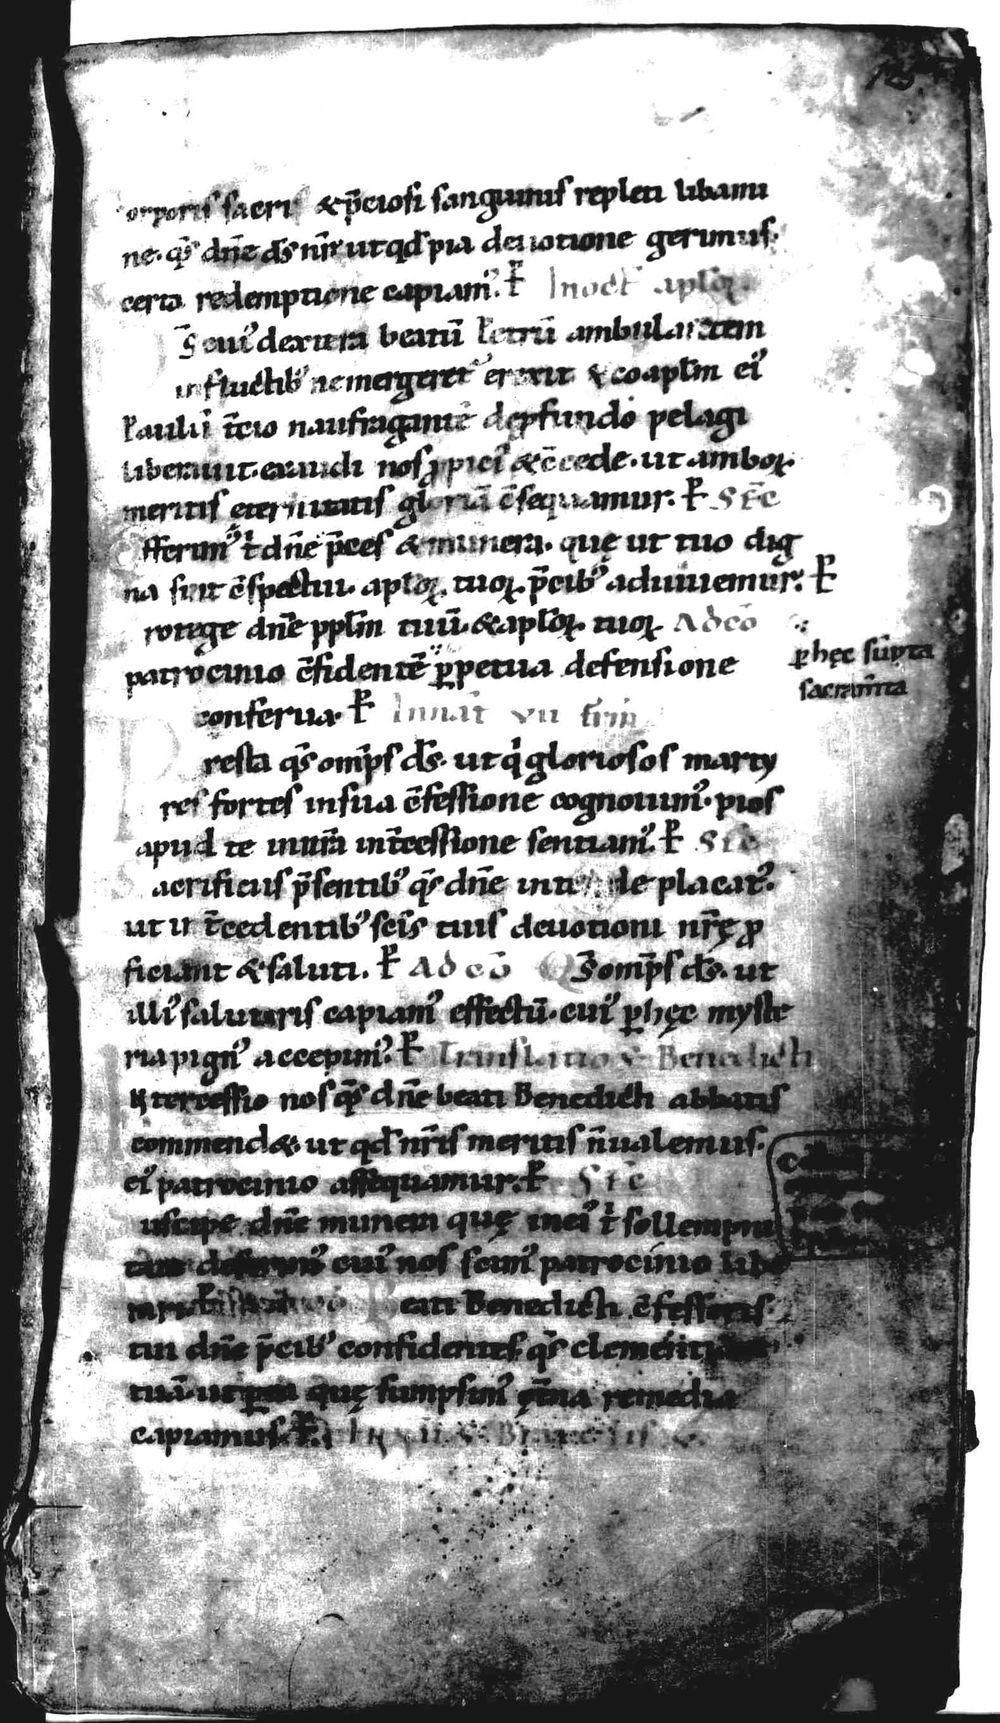 orporis sacri &p̄ciosi sanguinis repleti libami
ne. qs̄ dn̄e ds̄ nr̄ ut qd̄ pia deuotione gerimus.
certa redemptione capiam᾽. P̄ In oct̄ aplōꝝ.
D̄s cui᾽ dextera beatū Petrū ambulantem
in fluctib᾽ ne mergeret᾽ erexit & coapl̄m ei᾽
Paulū t̄cio naufragantē de ꝓfundo pelagi
liberauit. exaudi nos ꝓpici᾽ &c̄cede. ut amboꝝ
meritis eternitatis gloriā c̄sequamur. P̄ Stc̄
fferim᾽ t̄ dn̄e p̄ces & munera. quę ut tuo dig
na sint c̄spectui. aplōꝝ tuoꝝ p̄cib᾽ adiuuemur. P̄
rotege dn̄e ppl̄m tuū. & aplōꝝ tuoꝝ Ad cō
patrocinio c̄fidentē ꝑpetua defensione
conserua. P̄ In nat̄ vii fr̄m
ꝑ hęc sūpta
sacram̄ta
Presta qs̄ omp̄s ds̄. ut q̄ gloriosos marty
res fortes in sua c̄fessione cognouim᾽. pios
apud te in nr̄a int̄cessione sentiam᾽. P̄ Stc̄
Sacrificiis p̄sentib᾽ qs̄ dn̄e intende placat᾽.
ut int̄cedentib᾽ scīs tuis deuotioni nr̄ę ꝓ
ficiant & saluti. P̄ Ad cō Qs̄ omp̄s ds̄. ut
illi᾽ salutaris capiam᾽ effectū. cui᾽ ꝑ hęc myste
ria pign᾽ accepim᾽. P̄ Translatio S Benedicti
Intercessio nos qs̄ dn̄e beati Benedicti abbatis
commend&. ut qd̄ nr̄is meritis n̄ ualemus.
ei᾽ patrocinio assequamur. P̄ Stc̄
uscipe dn̄e munera quę in ei᾽ t̄ sollempni
tate deferim᾽ cui᾽ nos scim᾽ patrocinio libe
Beati Benedicti c̄fessoris
tui dn̄e p̄cib᾽ confidentes qs̄ clementiam
tuā. ut ꝑ ea quę sumpsim᾽ ęt̄na remedia
capiamus. P̄